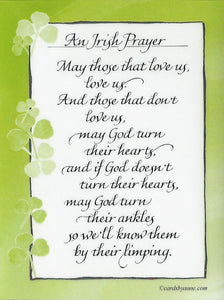 An Irish Prayer
May those that love us,
love us.
And those that don't
love us,
may God turn
their hearts,
and if God doesn't
turn their hearts,
may God turn
their ankles
so we'll know them
by their limping.
©cardsbyanne.com